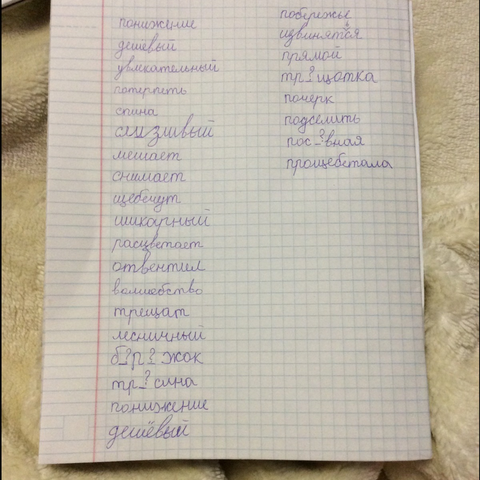 понижение
дешевый
увлекательный
потерпеть
спина
слизывый
мешает
снимает
щебечут
шикарный
расцветает
отвентил
волшебство
трещат
лесничный
б?р?жок
тр?сина
понижение
дешёвый
побережье
извинятся
прямой
тр?щотка
почерк
подселить
пос?вная
прощебетала